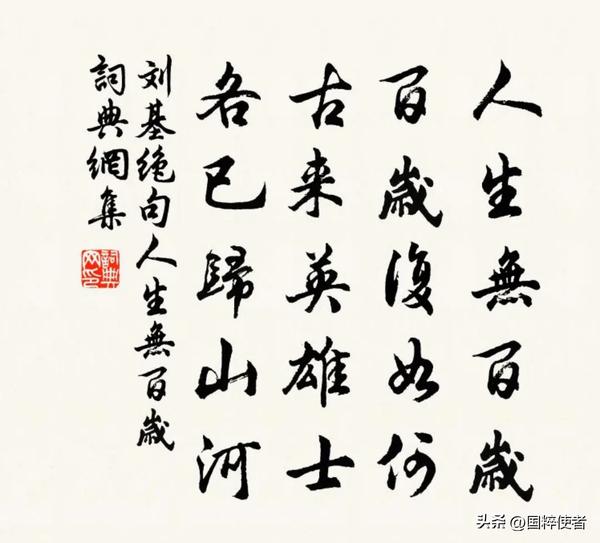 人生無百歲
百歲復如何
古来英雄士
各已歸山河
刘基绝句人生無百歲
詞典網集
詞典网印
头条 @国粹使者